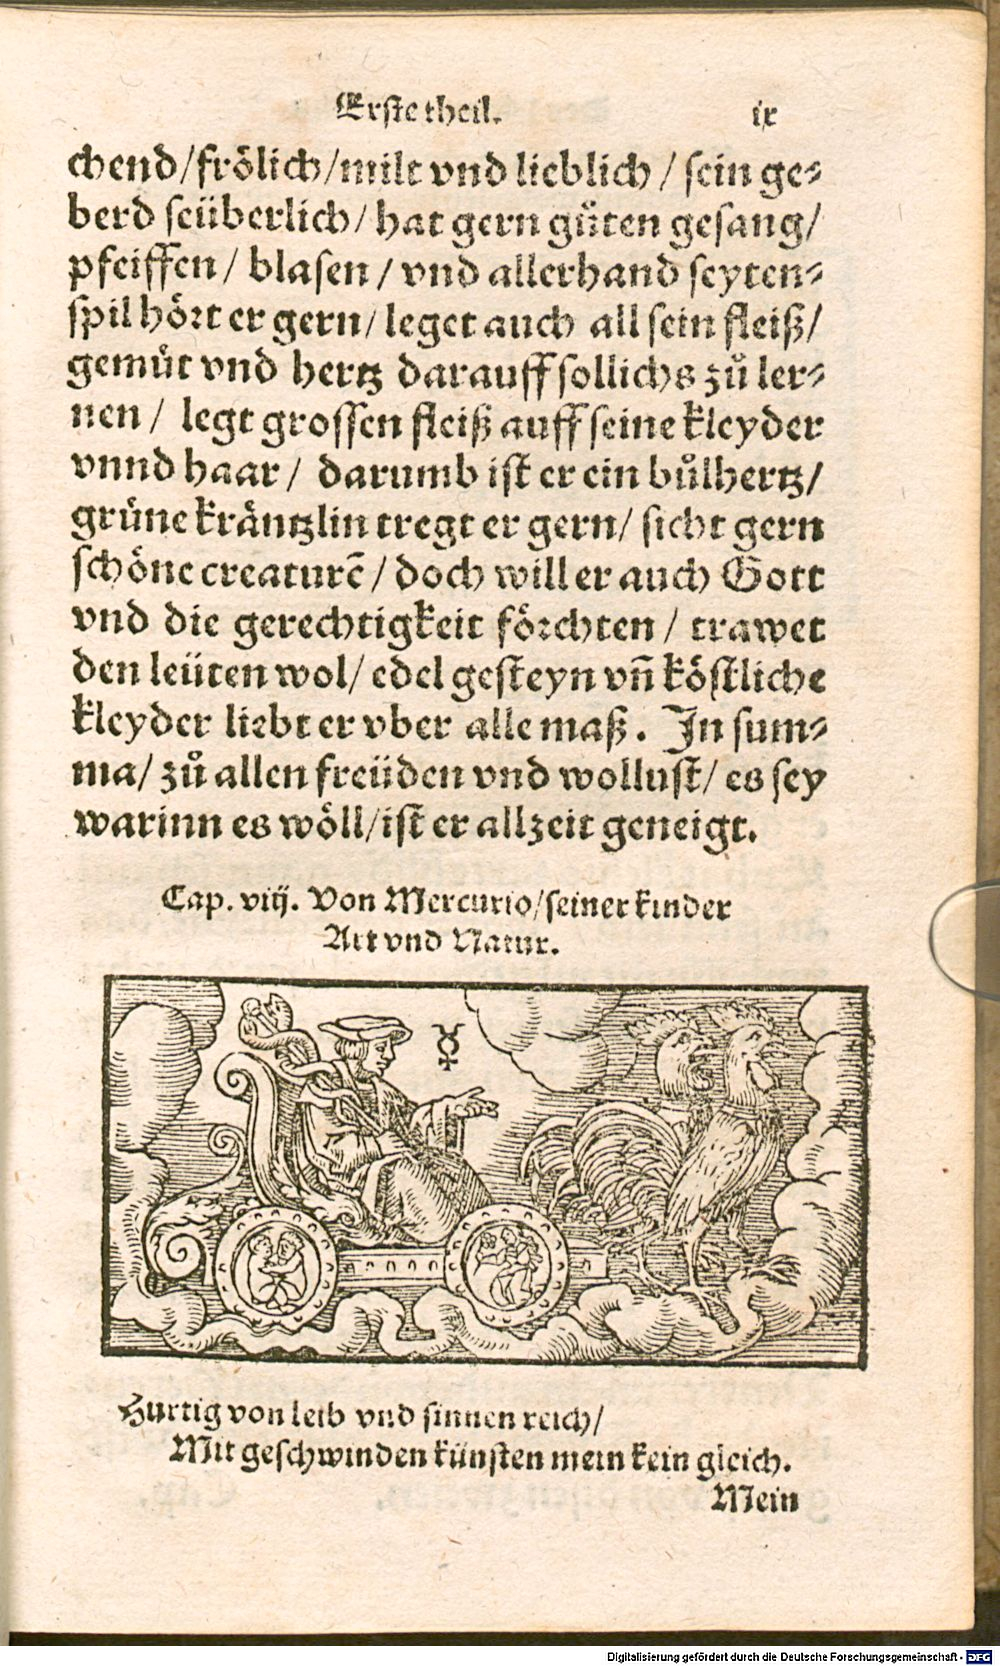 Erste theil. ix
chend/frölich/milt vnd lieblich / sein ge⸗
berd seüberlich / hat gern gůten gesang/
pfeiffen / blasen / vnd allerhand seyten⸗
spil hört er gern/ leget auch all sein fleiß/
gemüt vnd hertz darauff sollichs zů ler⸗
nen / legt grossen fleiß auff seine kleyder
vnnd haar / darumb ist er ein bůlhertz/
grüne kräntzlin tregt er gern/ sicht gern
schöne creaturē / doch will er auch Gott
vnd die gerechtigkeit förchten / trawet
den leüten wol/ edel gesteyn vñ köstliche
kleyder liebt er vber alle maß. In sum⸗
ma/ zů allen freüden vnd wollust/ es sey
warinn es wöll/ist er allzeit geneigt.
Cap. viij. Von Mercurio/seiner kinder
Art vnd Natur.
☿
Hurtig von leib vnd sinnen reich/
Mit geschwinden künsten mein kein gleich.
Mein
Digitalisierung gefördert durch die Deutsche Forschungsgemeinschaft - DFG